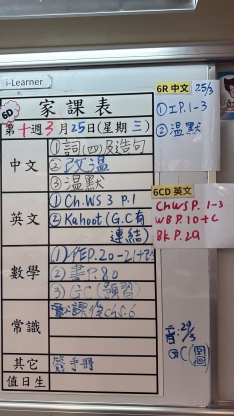 i-Learner
6D
家課表
第十週3月25日(星期三)
中文
①詞(四)及造句
②改温
③温默
英文
① Ch.WS 3 P.1
② Kahoot (G.C有
連結)
數學
①作P.20-21
②書P.80
③GC(預習)
常識
其它
簽手冊
值日生
6R 中文 25/3
①工P.1-3
②温默
6CD 英文
Ch WS P. 1-3
WB P.10+C
BK P.29
音:27/3
GC